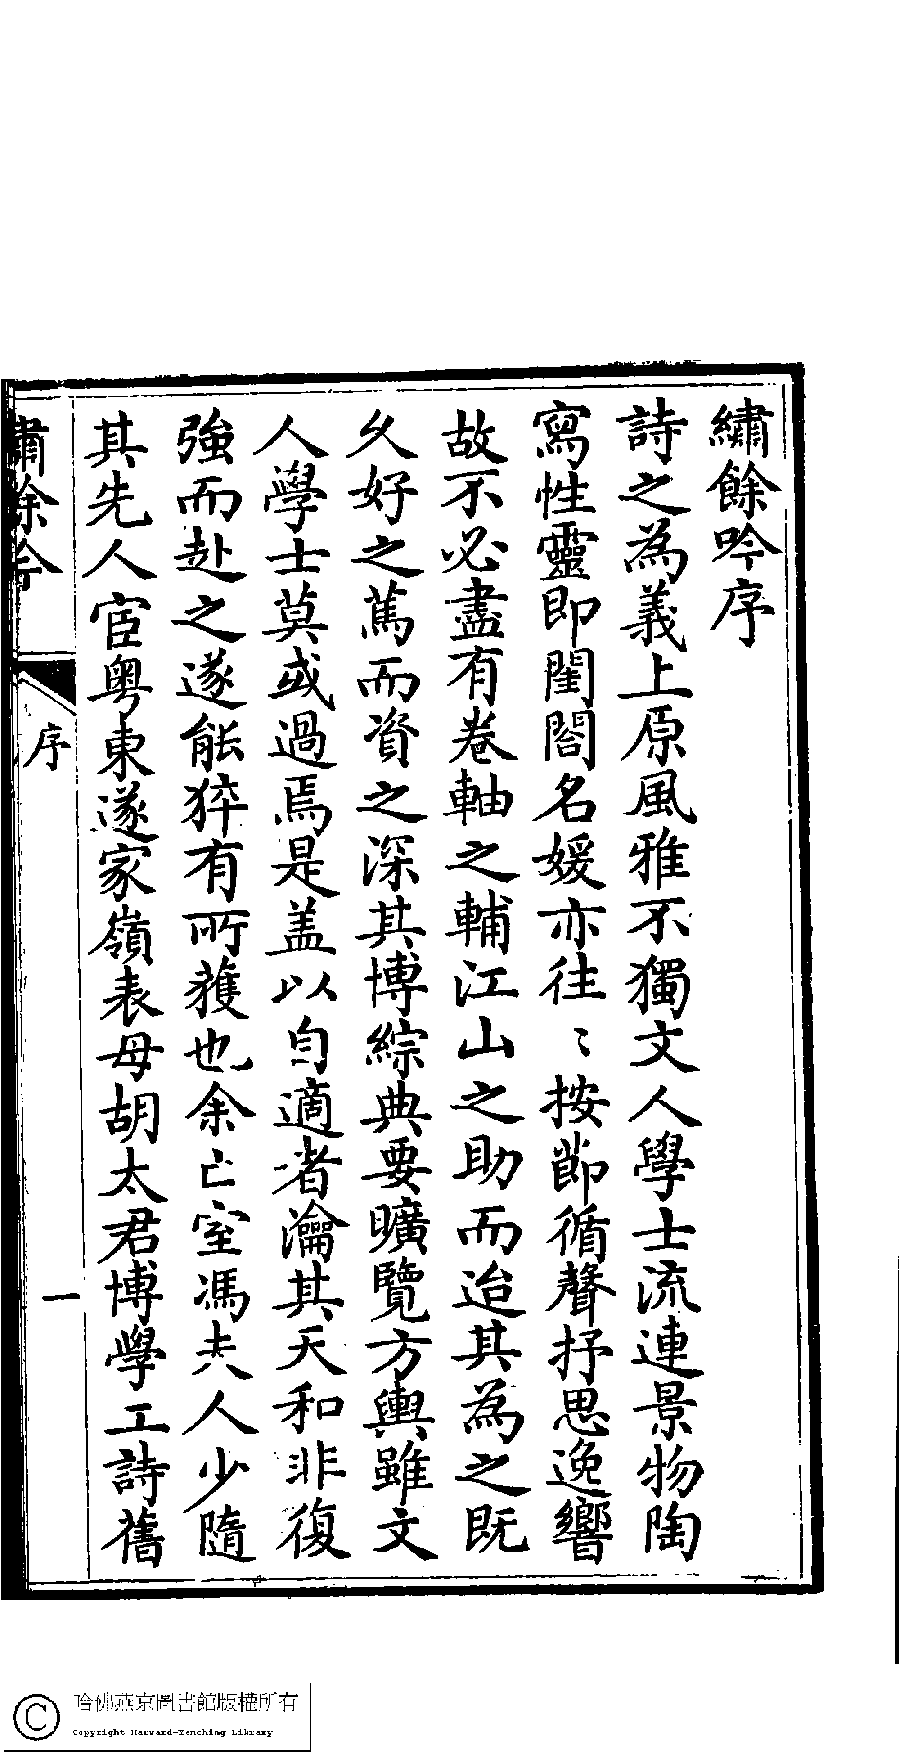 繡餘吟序
詩之為義上原風雅不獨文人學士流連景物陶
寫性靈即閨閤名媛亦往〻按節循聲抒思逸響
故不必盡有卷軸之輔江山之助而迨其為之既
久好之篤而資之深其博綜典要曠覽方輿雖文
人學士莫或過焉是盖以自適者瀹其天和非復
強而赴之遂能猝有所獲也余亡室馮夫人少隨
其先人宦粵東遂家嶺表母胡太君博學工詩舊
繡餘吟
序
一
哈佛燕京圖書館版權所有
Copyright Harvard-Yenching Library